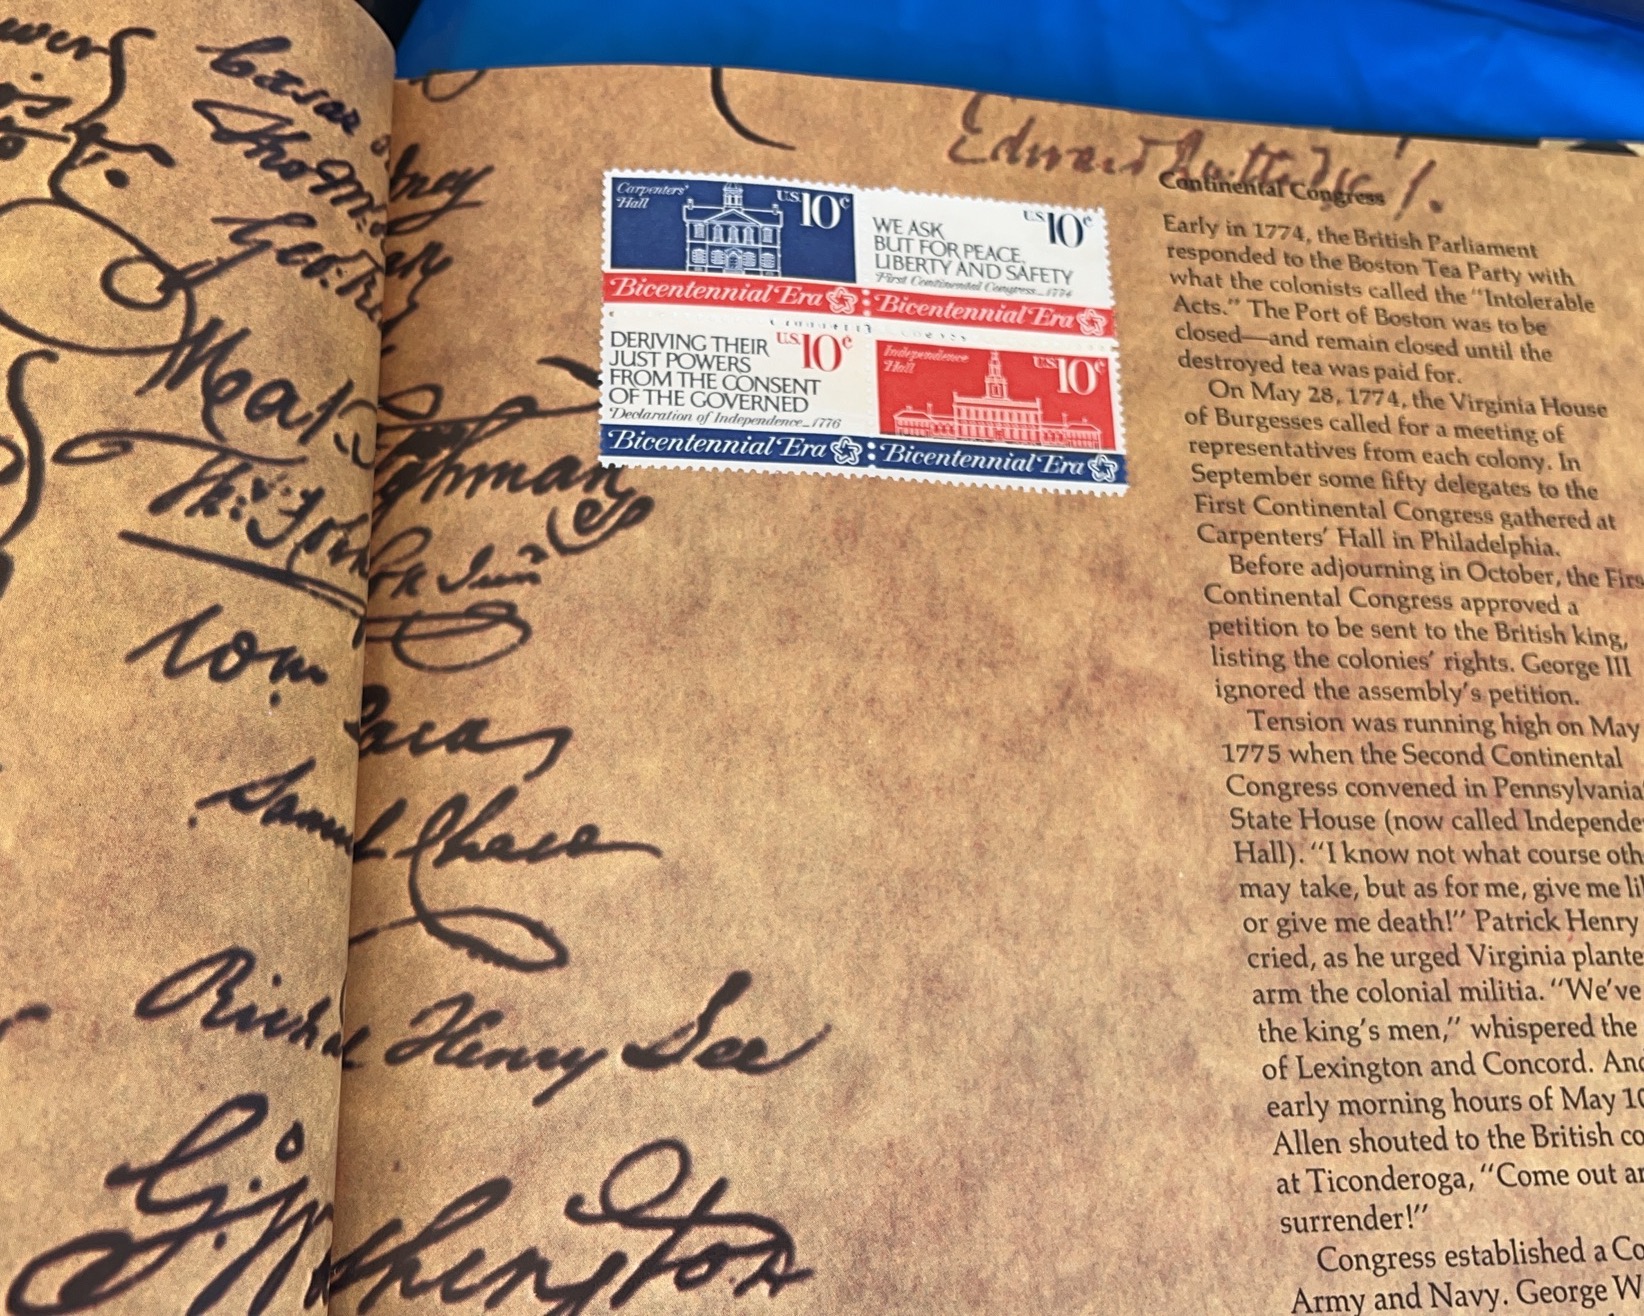 Edward
Cæsar
dney
Tho M:
Geo: Re
Richard Henry Lee
Samuel Chase
Carpenters'
Hall
U.S. 10c
WE ASK
BUT FOR PEACE,
LIBERTY AND SAFETY
First Continental Congress_1774
U.S. 10c
Bicentennial Era
Bicentennial Era
DERIVING THEIR
JUST POWERS
FROM THE CONSENT
OF THE GOVERNED
Declaration of Independence_1776
U.S. 10c
Independence
Hall
U.S. 10c
Bicentennial Era
Bicentennial Era
Continental Congress
Early in 1774, the British Parliament
responded to the Boston Tea Party with
what the colonists called the “Intolerable
Acts.” The Port of Boston was to be
closed—and remain closed until the
destroyed tea was paid for.
On May 28, 1774, the Virginia House
of Burgesses called for a meeting of
representatives from each colony. In
September some fifty delegates to the
First Continental Congress gathered at
Carpenters’ Hall in Philadelphia.
Before adjourning in October, the Firs
Continental Congress approved a
petition to be sent to the British king,
listing the colonies’ rights. George III
ignored the assembly’s petition.
Tension was running high on May
1775 when the Second Continental
Congress convened in Pennsylvania
State House (now called Independe
Hall). “I know not what course oth
may take, but as for me, give me li
or give me death!” Patrick Henry
cried, as he urged Virginia plante
arm the colonial militia. “We’ve
the king’s men,” whispered the
of Lexington and Concord. And
early morning hours of May 10
Allen shouted to the British co
at Ticonderoga, “Come out an
surrender!”
Congress established a Co
Army and Navy. George W